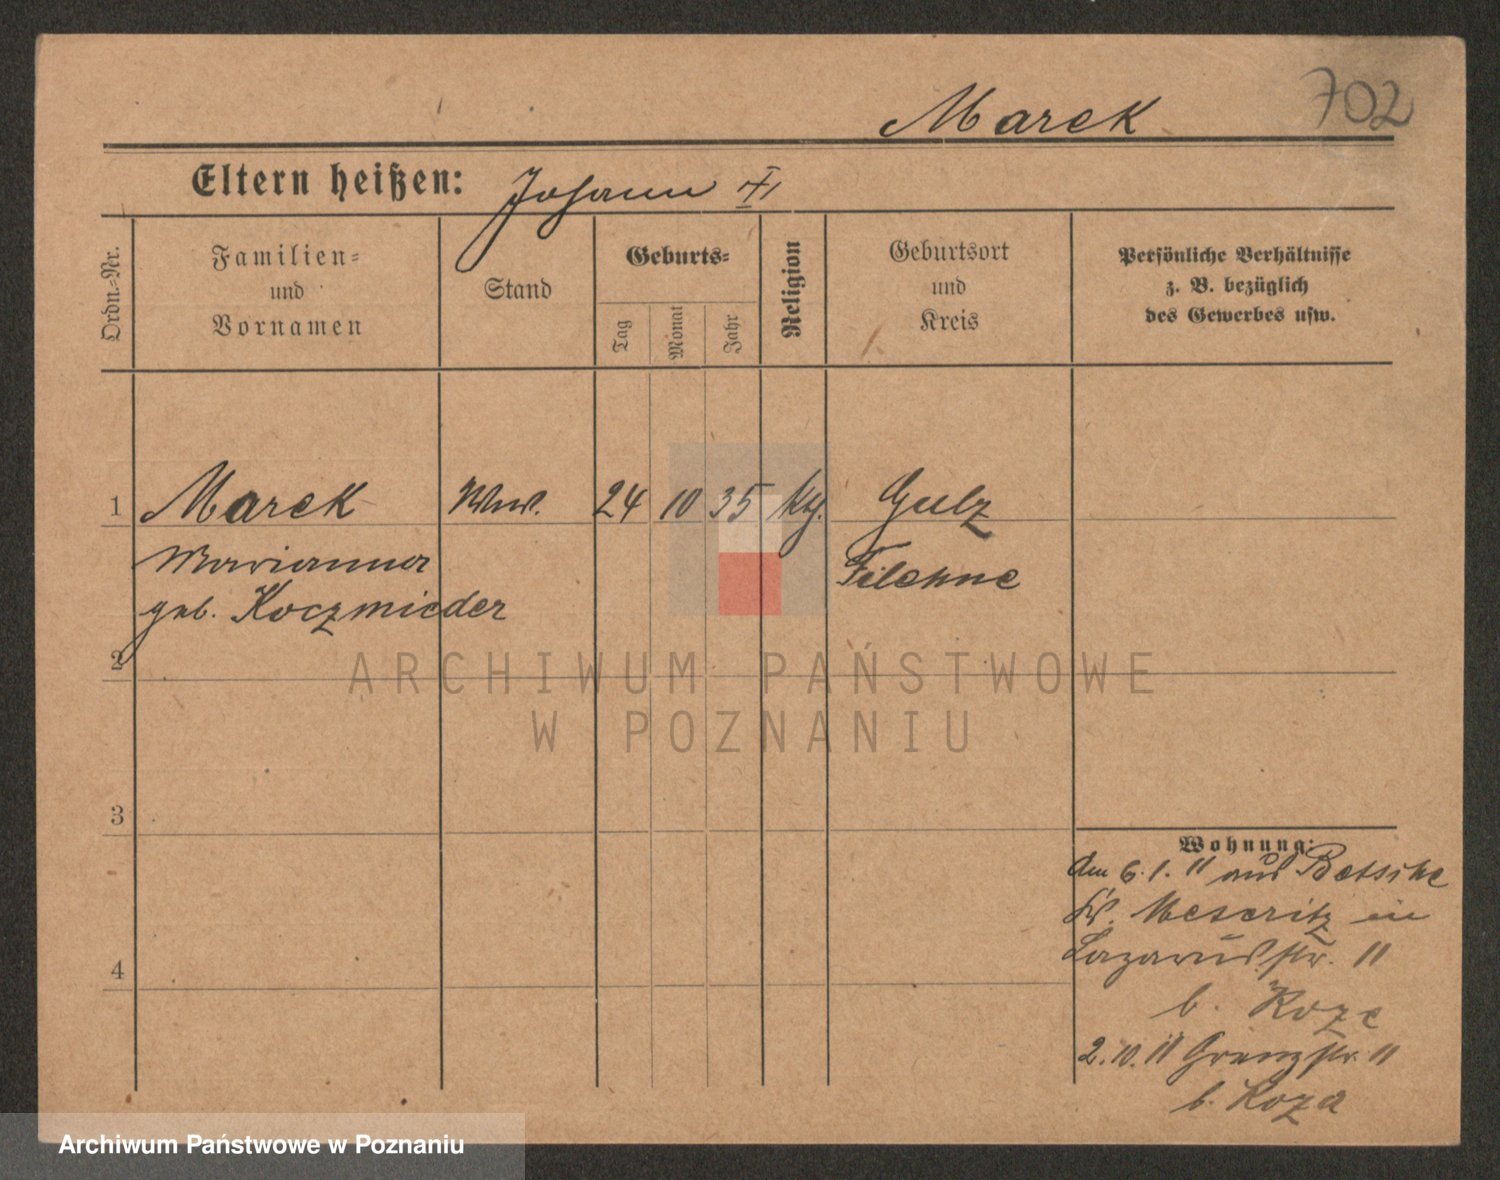 702
Marek
Eltern heißen: Johann
Ordn.-Nr.
Familien-
und
Vornamen
Stand
Geburts-
Tag
Monat
Jahr
Religion
Geburtsort
und
Kreis
Persönliche Verhältnisse
z. B. bezüglich
des Gewerbes usw.
1 Marek Ww. 24 10 35 kth. Gulz
Marianna Filehne
geb. Koczmieder
2
ARCHIWUM PAŃSTWOWE
W POZNANIU
3
Wohnung:
den 6.1.11 aus Betsche
Kr. Meseritz in
4 Lazarusstr. 11
b. Koza
2.10.11 Grenzstr. 11
b. Koza
Archiwum Państwowe w Poznaniu